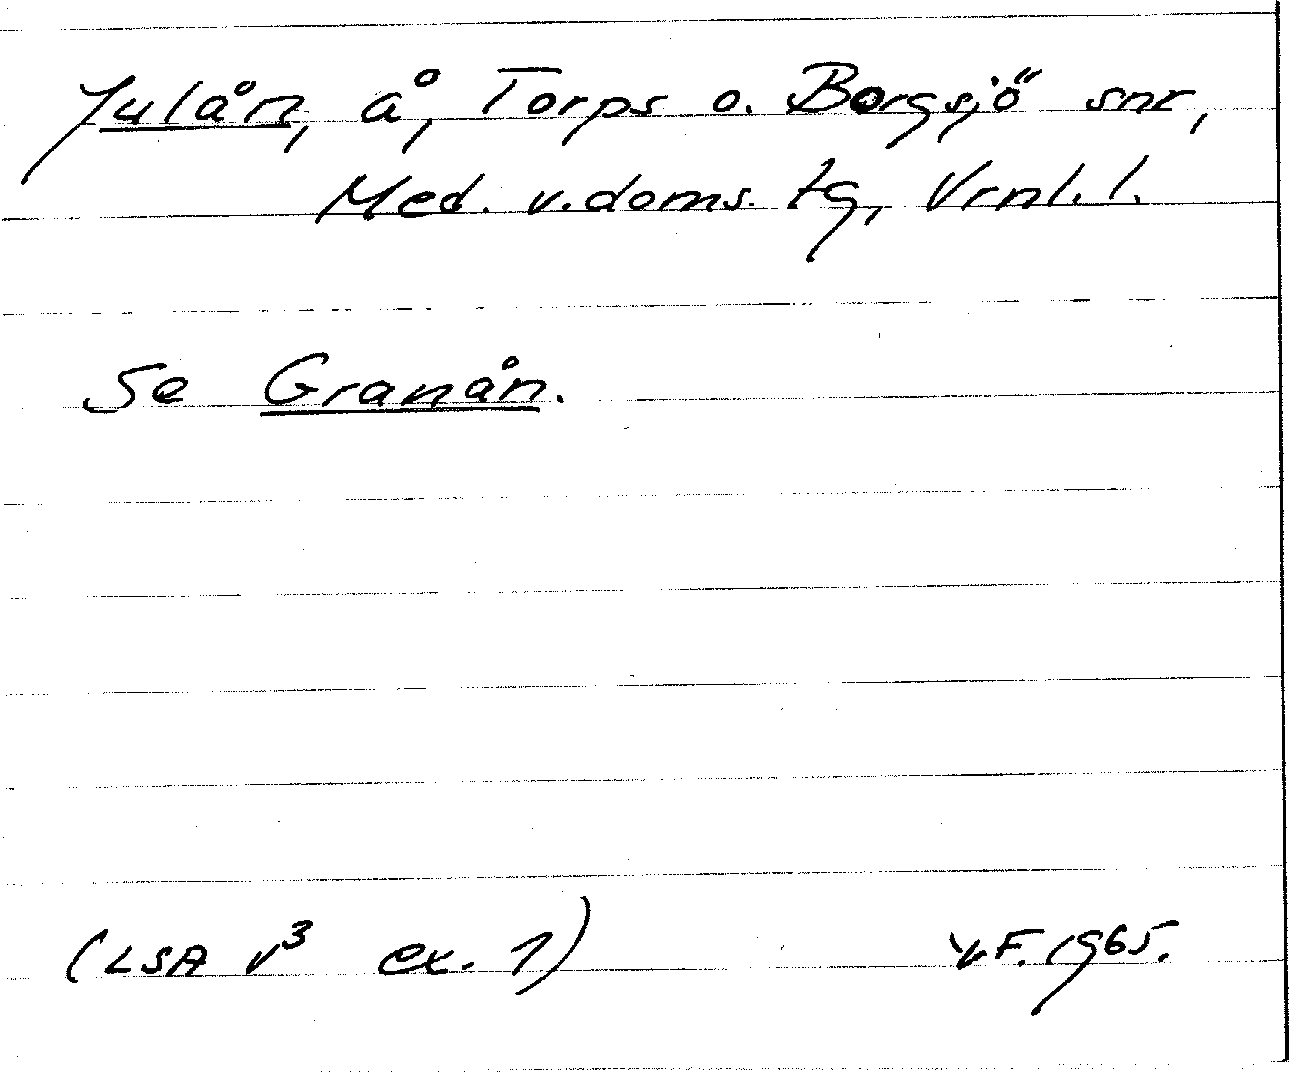 Julån, å, Torps o. Borgsjö snr,
Med. v. doms. tg, Vrnl. l.
Se Granån.
(LSA V³ ex. 1) V.F. 1965.